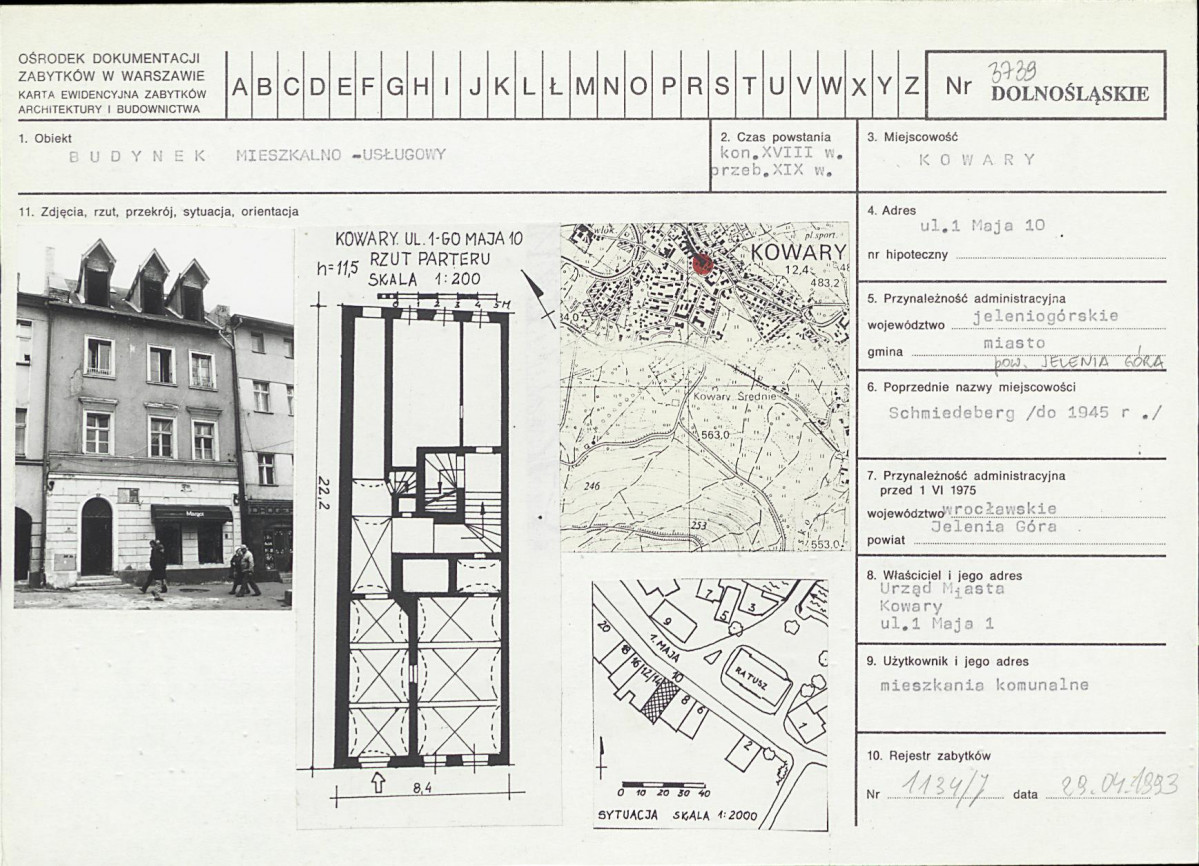 OŚRODEK DOKUMENTACJI
ZABYTKÓW W WARSZAWIE
KARTA EWIDENCYJNA ZABYTKÓW
ARCHITEKTURY I BUDOWNICTWA
A B C D E F G H I J K L Ł M N O P R S T U V W X Y Z
Nr 3739
DOLNOŚLĄSKIE
1. Obiekt
BUDYNEK MIESZKALNO -USŁUGOWY
2. Czas powstania
kon.XVIII w.
przeb.XIX w.
3. Miejscowość
KOWARY
11. Zdjęcia, rzut, przekrój, sytuacja, orientacja
Margot
KOWARY. UL. 1-GO MAJA 10
RZUT PARTERU
h=11,5
SKALA 1:200
0 1 2 3 4 5M
22,2
8,4
włók.
pl. sport.
KOWARY
12,4
483,2
Kowary Średnie
563,0
246
253
553,0
7 5 3
9
20
18
16
12/14
10
8
6
2
1
1. MAJA
RATUSZ
0 10 20 30 40
SYTUACJA SKALA 1:2000
4. Adres
ul.1 Maja 10
nr hipoteczny
5. Przynależność administracyjna
województwo jeleniogórskie
gmina miasto
pow. JELENIA GÓRA
6. Poprzednie nazwy miejscowości
Schmiedeberg /do 1945 r ./
7. Przynależność administracyjna
przed 1 VI 1975
województwo wrocławskie
Jelenia Góra
powiat
8. Właściciel i jego adres
Urząd Miasta
Kowary
ul.1 Maja 1
9. Użytkownik i jego adres
mieszkania komunalne
10. Rejestr zabytków
Nr 1134/J data 29.04.1993